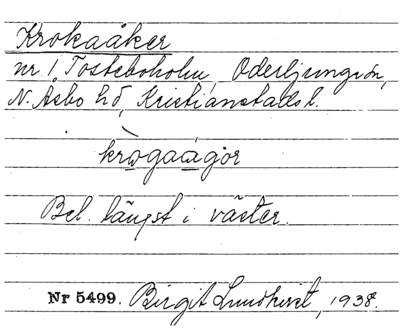 Krokaåker
nr 1, Tosteboholm, Oderljunga sn,
N. Åsbo hd, Kristianstads l.
krògaágòr
Bel. längst i väster.
Nr 5499. Birgit Lundkvist, 1938.